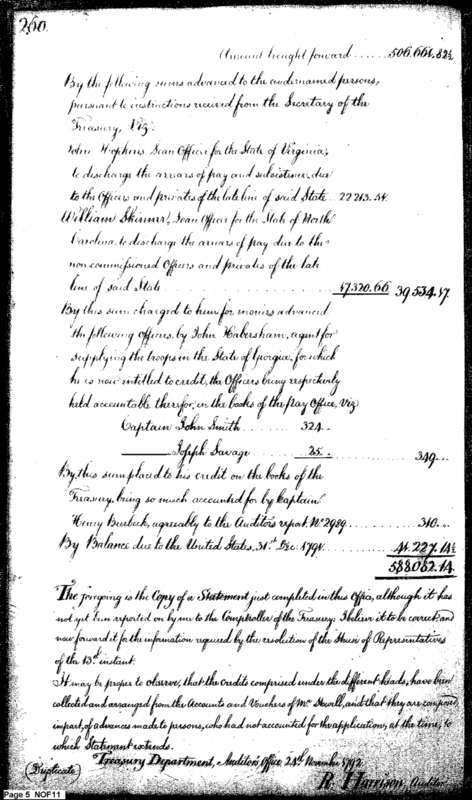 260.
Amount brought forward ...... 506.661.82½
By the following sums advanced to the undernamed persons,
pursuant to instructions received from the Secretary of the
Treasury, Viz:
John Hopkins, Loan Officer for the State of Virginia,
to discharge the arrears of pay and subsistence, due
to the Officers and privates of the late line of said State .. 22213.51.
William Skinner, Loan Officer for the State of North
Carolina, to discharge the arrears of pay due to the
non commissioned Officers and privates of the late
line of said State .......... 17.320.66 39534.17
By this sum charged to him for monies advanced
the following officers, by John Habersham, agent for
supplying the troops in the State of Georgia, for which
he is now intitled to credit, the Officers being respectively
held accountable therefor, in the books of the Pay Office, Viz
Captain John Smith ........ 324..
Joseph Savage ....... 25.. ........ 349...
By this sum placed to his credit on the books of the
Treasury, being so much accounted for by Captain
Henry Burbeck, agreeably to the Auditor's report, No. 2989. ........ 310...
By Balance due to the United States, 31st Dec. 1791. ........ 41.227.14½
588082.14
The foregoing is the Copy of a Statement just completed in this Office, although it has
not yet been reported on by me to the Comptroller of the Treasury; I believe it to be correct and
now forward it for the information required by the resolution of the House of Representatives
of the 13th instant.
It may be proper to observe, that the credits comprised under the different heads, have been
collected and arranged from the Accounts and Vouchers of Mr. Howell, and that they are composed
in part, of advances made to persons, who had not accounted for the application, at the time, to
which Statement extends.
Treasury Department, Auditor's Office 24th November 1792.
(Duplicate) R. Harrison, Auditor
Page 5 NOF11